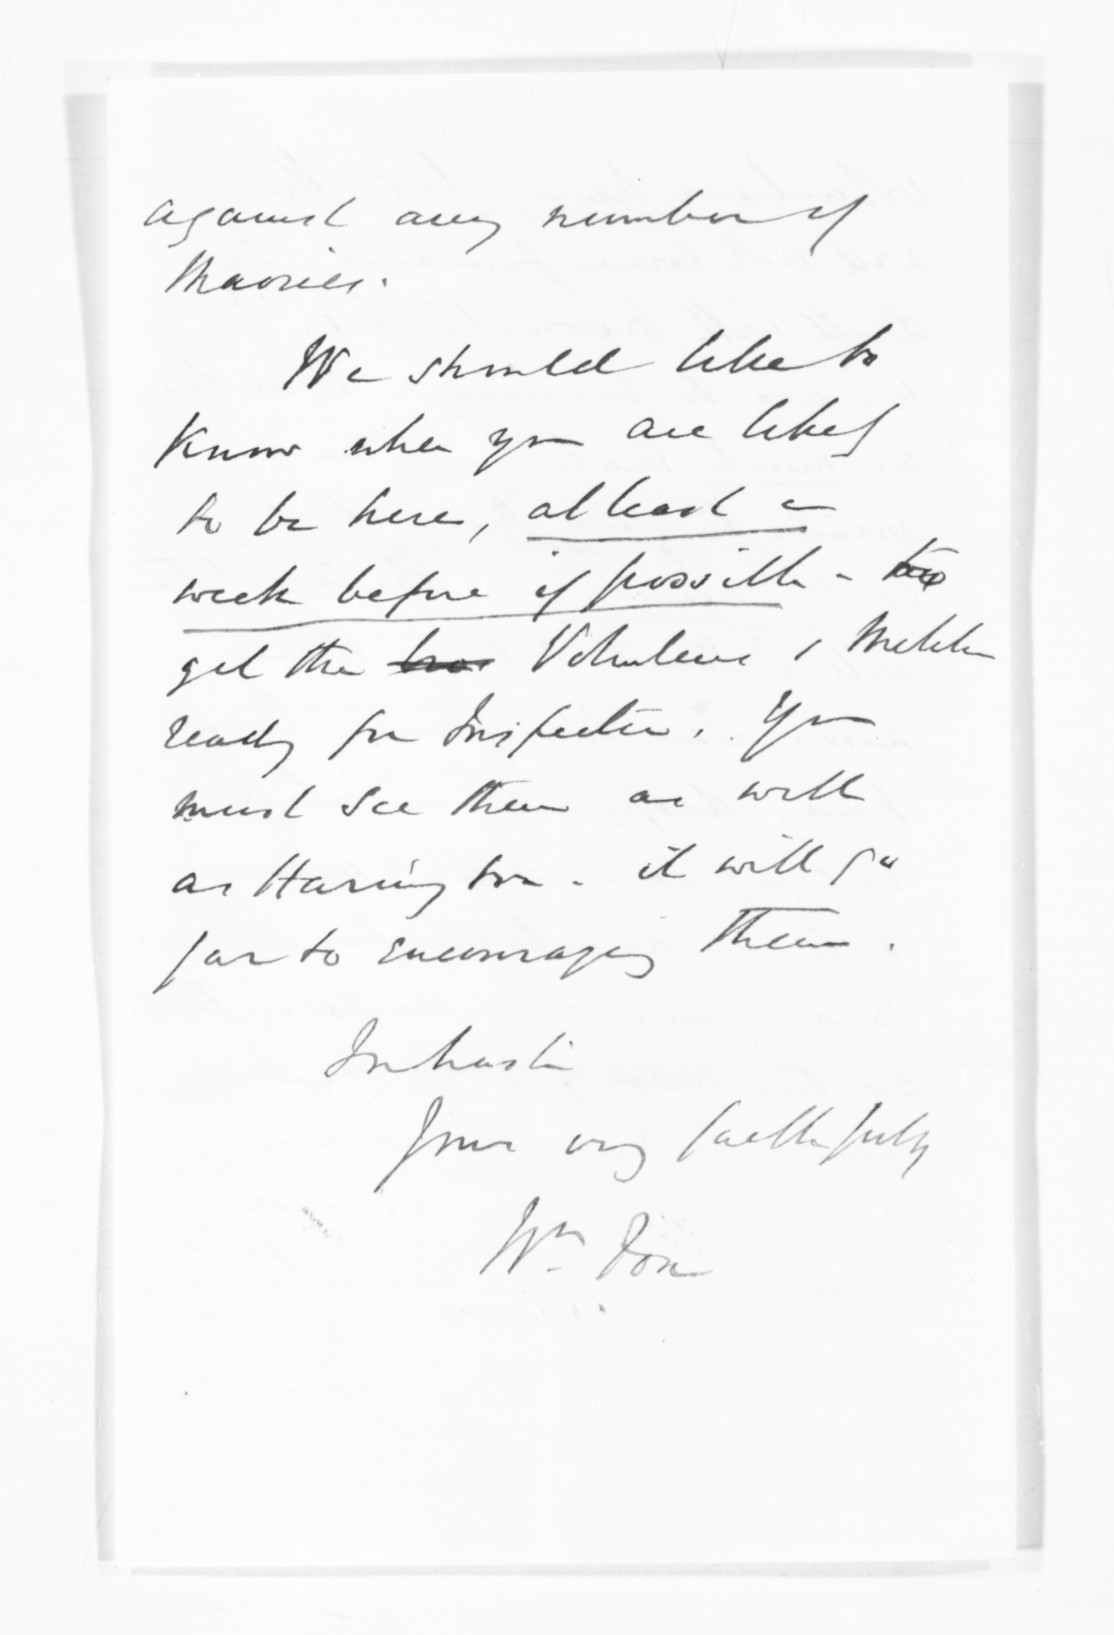 against any number of
Maories.
We should like to
Know when you are likely
to be here, at least a
week before if possible - to
get the Volunteers & Militia
ready for Inspection. You
must see them as well
as Harington. it will go
far to encouraging them.
In haste
Yours very faithfully
Wm